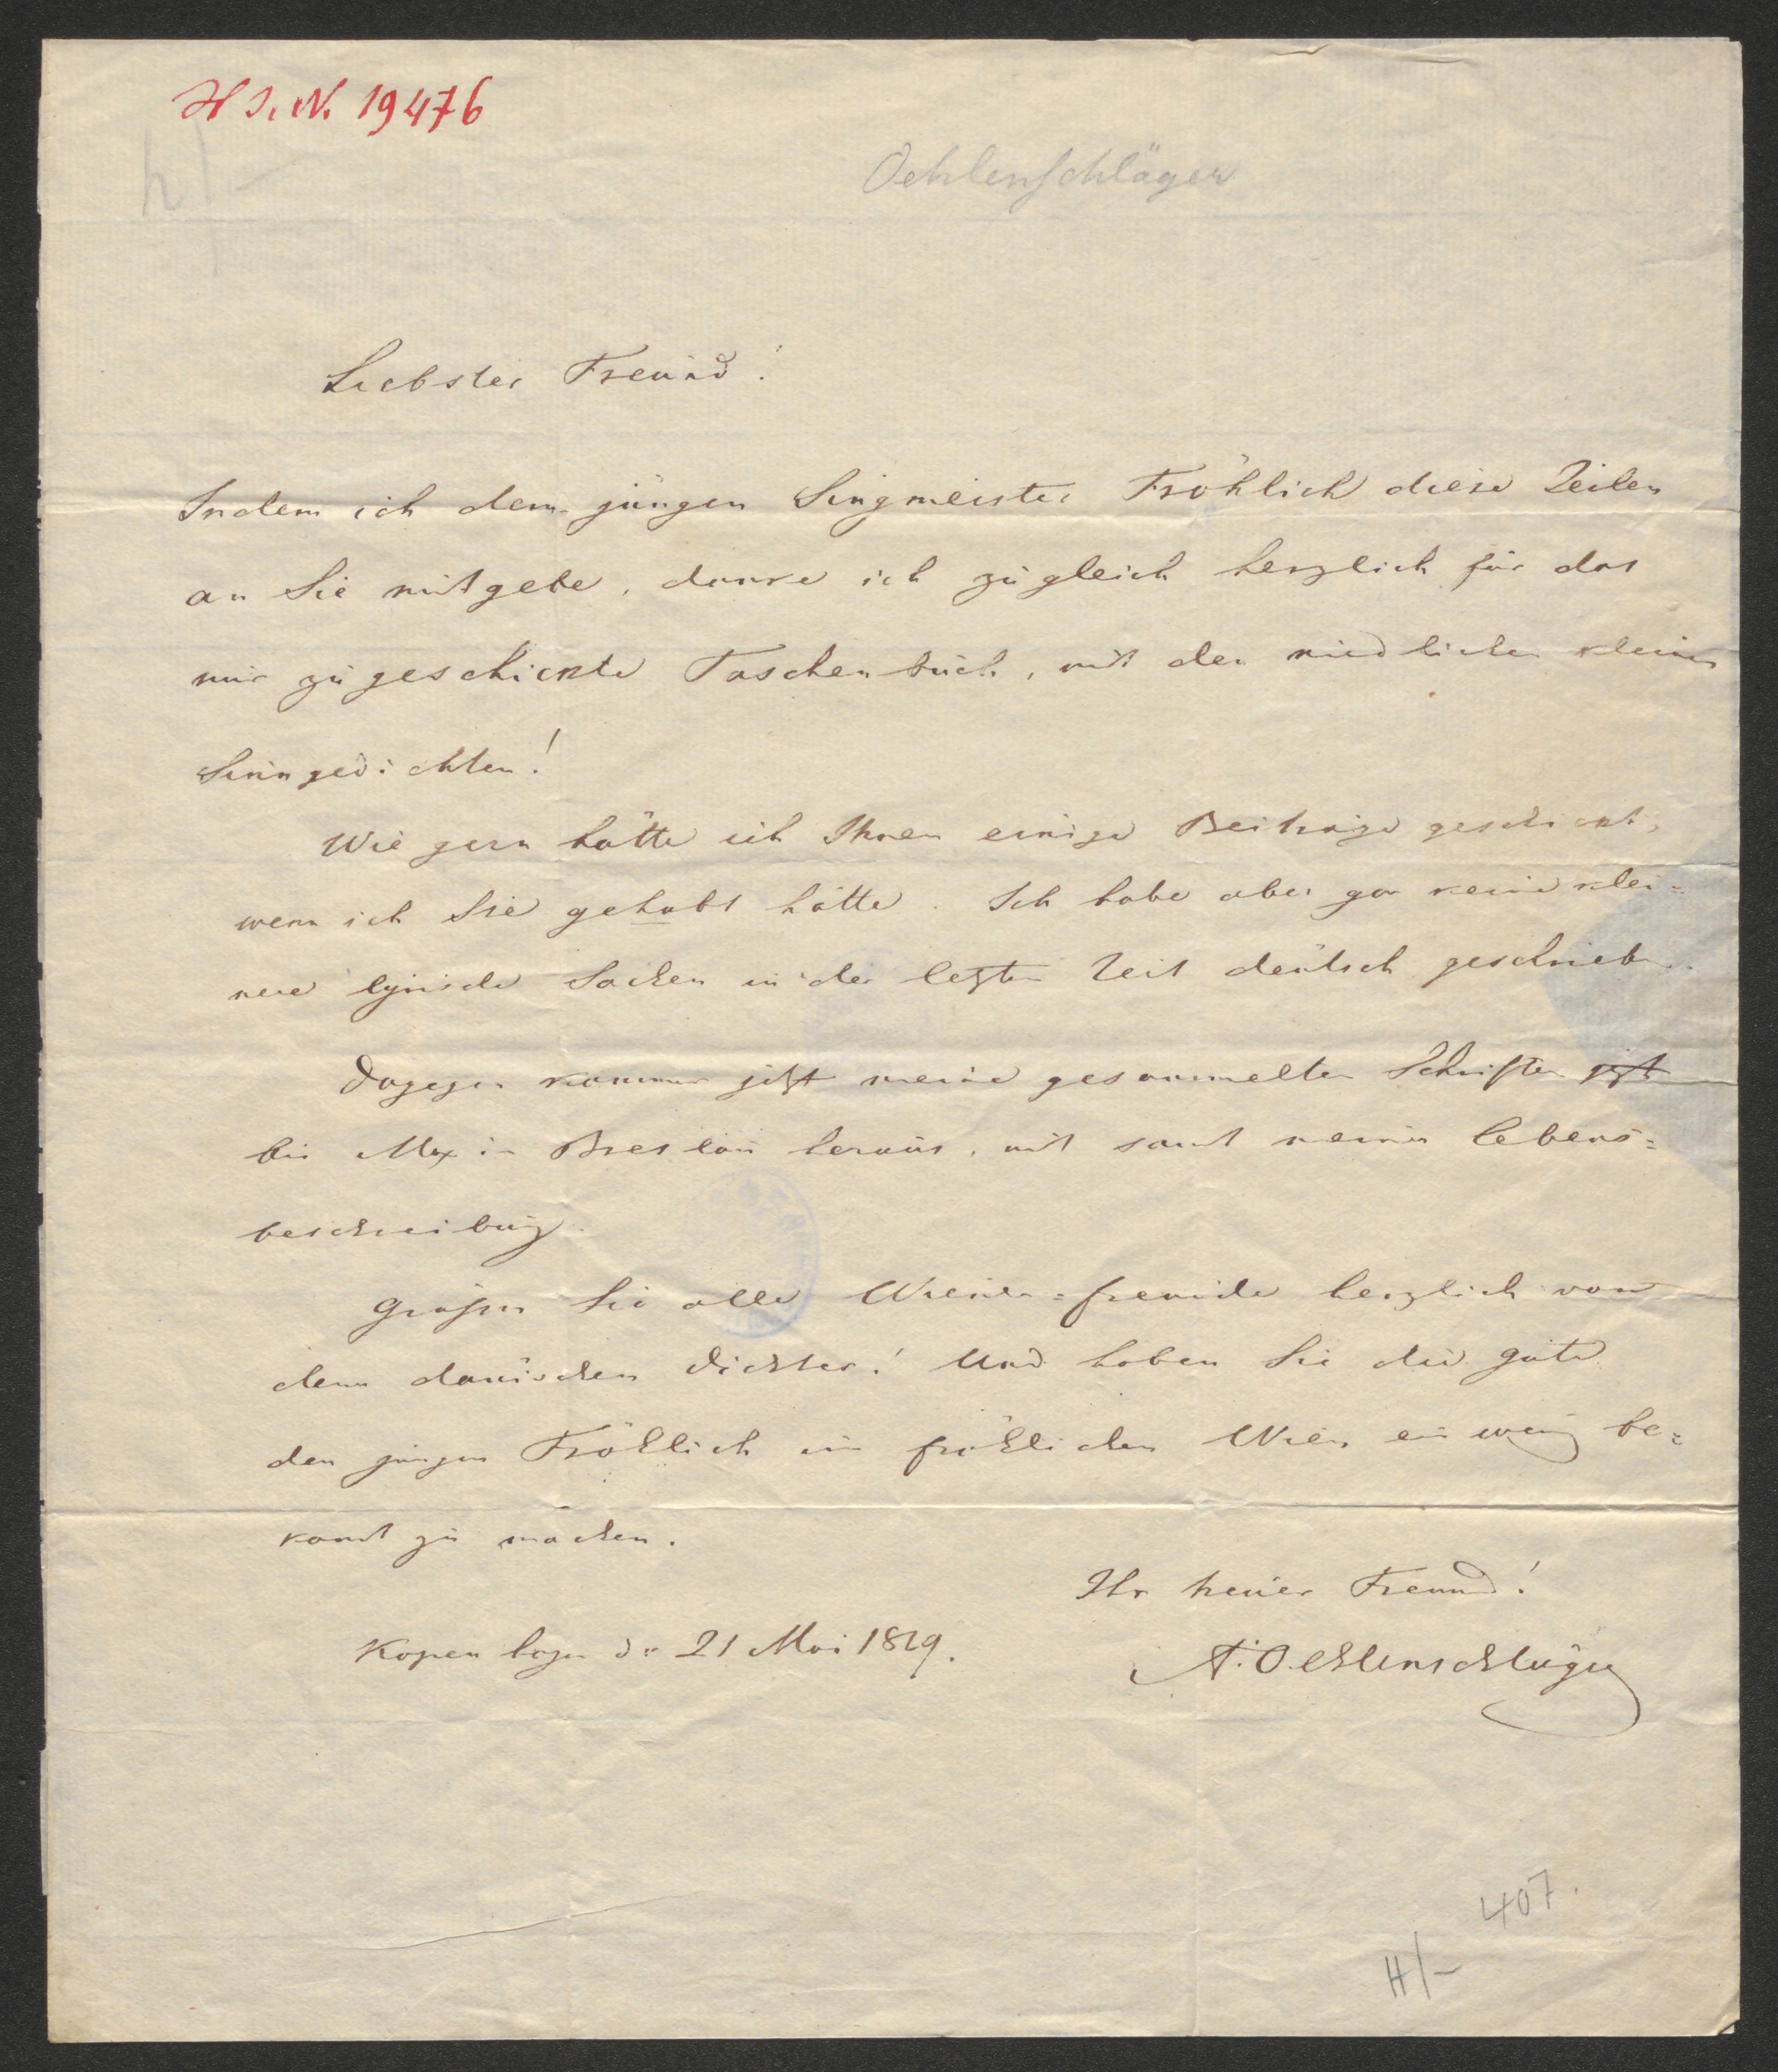 H I. N. 19476
Oehlenschläger
Liebster Freund!
Indem ich dem jungen Singmeister Fröhlich diese Zeilen
an Sie mitgebe, danke ich zugleich herzlich für das
mir zugeschickte Taschenbuch, mit den niedlichen kleinen
Sinngedichten!
Wie gern hätte ich Ihnen einige Beiträge geschickt,
wenn ich Sie gehabt hätte. Ich habe aber gar keine klei=
nere lyrische Sachen in der letzten Zeit deutsch geschrieben.
Dagegen kommen jetzt meine gesammelten Schriften jetzt
bei Max in Breslau heraus, mit samt meiner Lebens=
beschreibung.
Grüssen Sie alle Wiener=freunde herzlich von
dem dänischen Dichter! Und haben Sie die Güte
den jungen Fröhlich im fröhlichen Wien ein wenig be=
kannt zu machen.
Ihr treuer Freund!
Kopenhagen d. 21 Mai 1829.
A. Oehlenschläger
407.
H/-